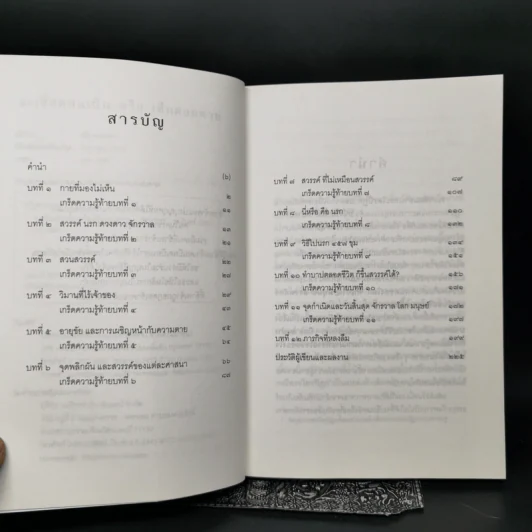 สารบัญ
คำนำ (๖)
บทที่ ๑ กายที่มองไม่เห็น ๒
เกร็ดความรู้ท้ายบทที่ ๑ ๑๑
บทที่ ๒ สวรรค์ นรก ดวงดาว จักรวาล ๑๓
เกร็ดความรู้ท้ายบทที่ ๒ ๒๑
บทที่ ๓ สวนสวรรค์ ๒๓
เกร็ดความรู้ท้ายบทที่ ๓ ๒๗
บทที่ ๔ วิมานที่ไร้เจ้าของ ๒๙
เกร็ดความรู้ท้ายบทที่ ๔
บทที่ ๕ อายุขัย และการเผชิญหน้ากับความตาย ๔๕
เกร็ดความรู้ท้ายบทที่ ๕
บทที่ ๖ จุดพลิกผัน และสวรรค์ของแต่ละศาสนา ๖๖
เกร็ดความรู้ท้ายบทที่ ๖ ๘๗
บทที่ ๗ สวรรค์ ที่ไม่เหมือนสวรรค์ ๘๙
เกร็ดความรู้ท้ายบทที่ ๗ ๑๐๗
บทที่ ๘ นี่หรือ คือ นรก ๑๑๐
เกร็ดความรู้ท้ายบทที่ ๘ ๑๓๒
บทที่ ๙ วิถีในนรก ๔๕๗ ขุม ๑๓๔
เกร็ดความรู้ท้ายบทที่ ๙ ๑๕๔
บทที่ ๑๐ ทำบาปตลอดชีวิต ก็ขึ้นสวรรค์ได้? ๑๕๖
เกร็ดความรู้ท้ายบทที่ ๑๐
บทที่ ๑๑ จุดกำเนิดและวันสิ้นสุด จักรวาล โลก มนุษย์
เกร็ดความรู้ท้ายบทที่ ๑๑ ๑๙๗
บทที่ ๑๒ ภารกิจที่หลงลืม ๑๙๙
ประวัติผู้เขียนและผลงาน ๒๒๕